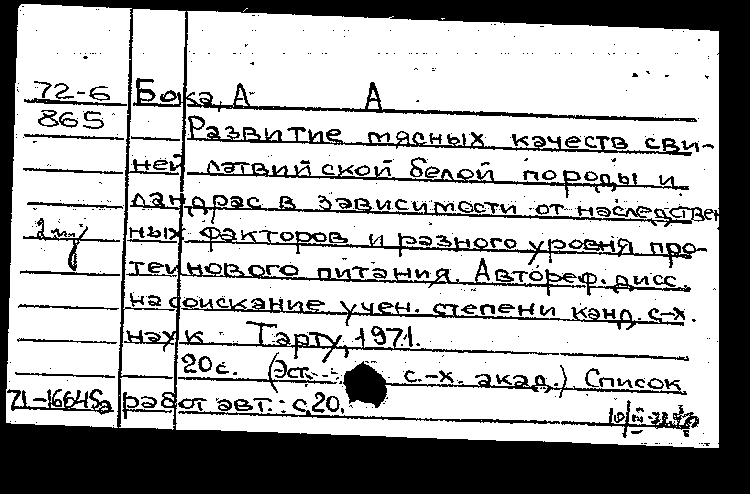 72-6 Бока, А А
865 Развитие мясных качеств сви-
ней латвийской белой породы и
ландрас в зависимости от наследствен
ных факторов и разного уровня про-
теинового питания. Автореф. дисс.
на соискание учен. степени канд. с-х.
наук. Тарту, 1971.
20 с. (Эст. с.-х. акад.) Список
71-16645а работ авт.: с. 20.